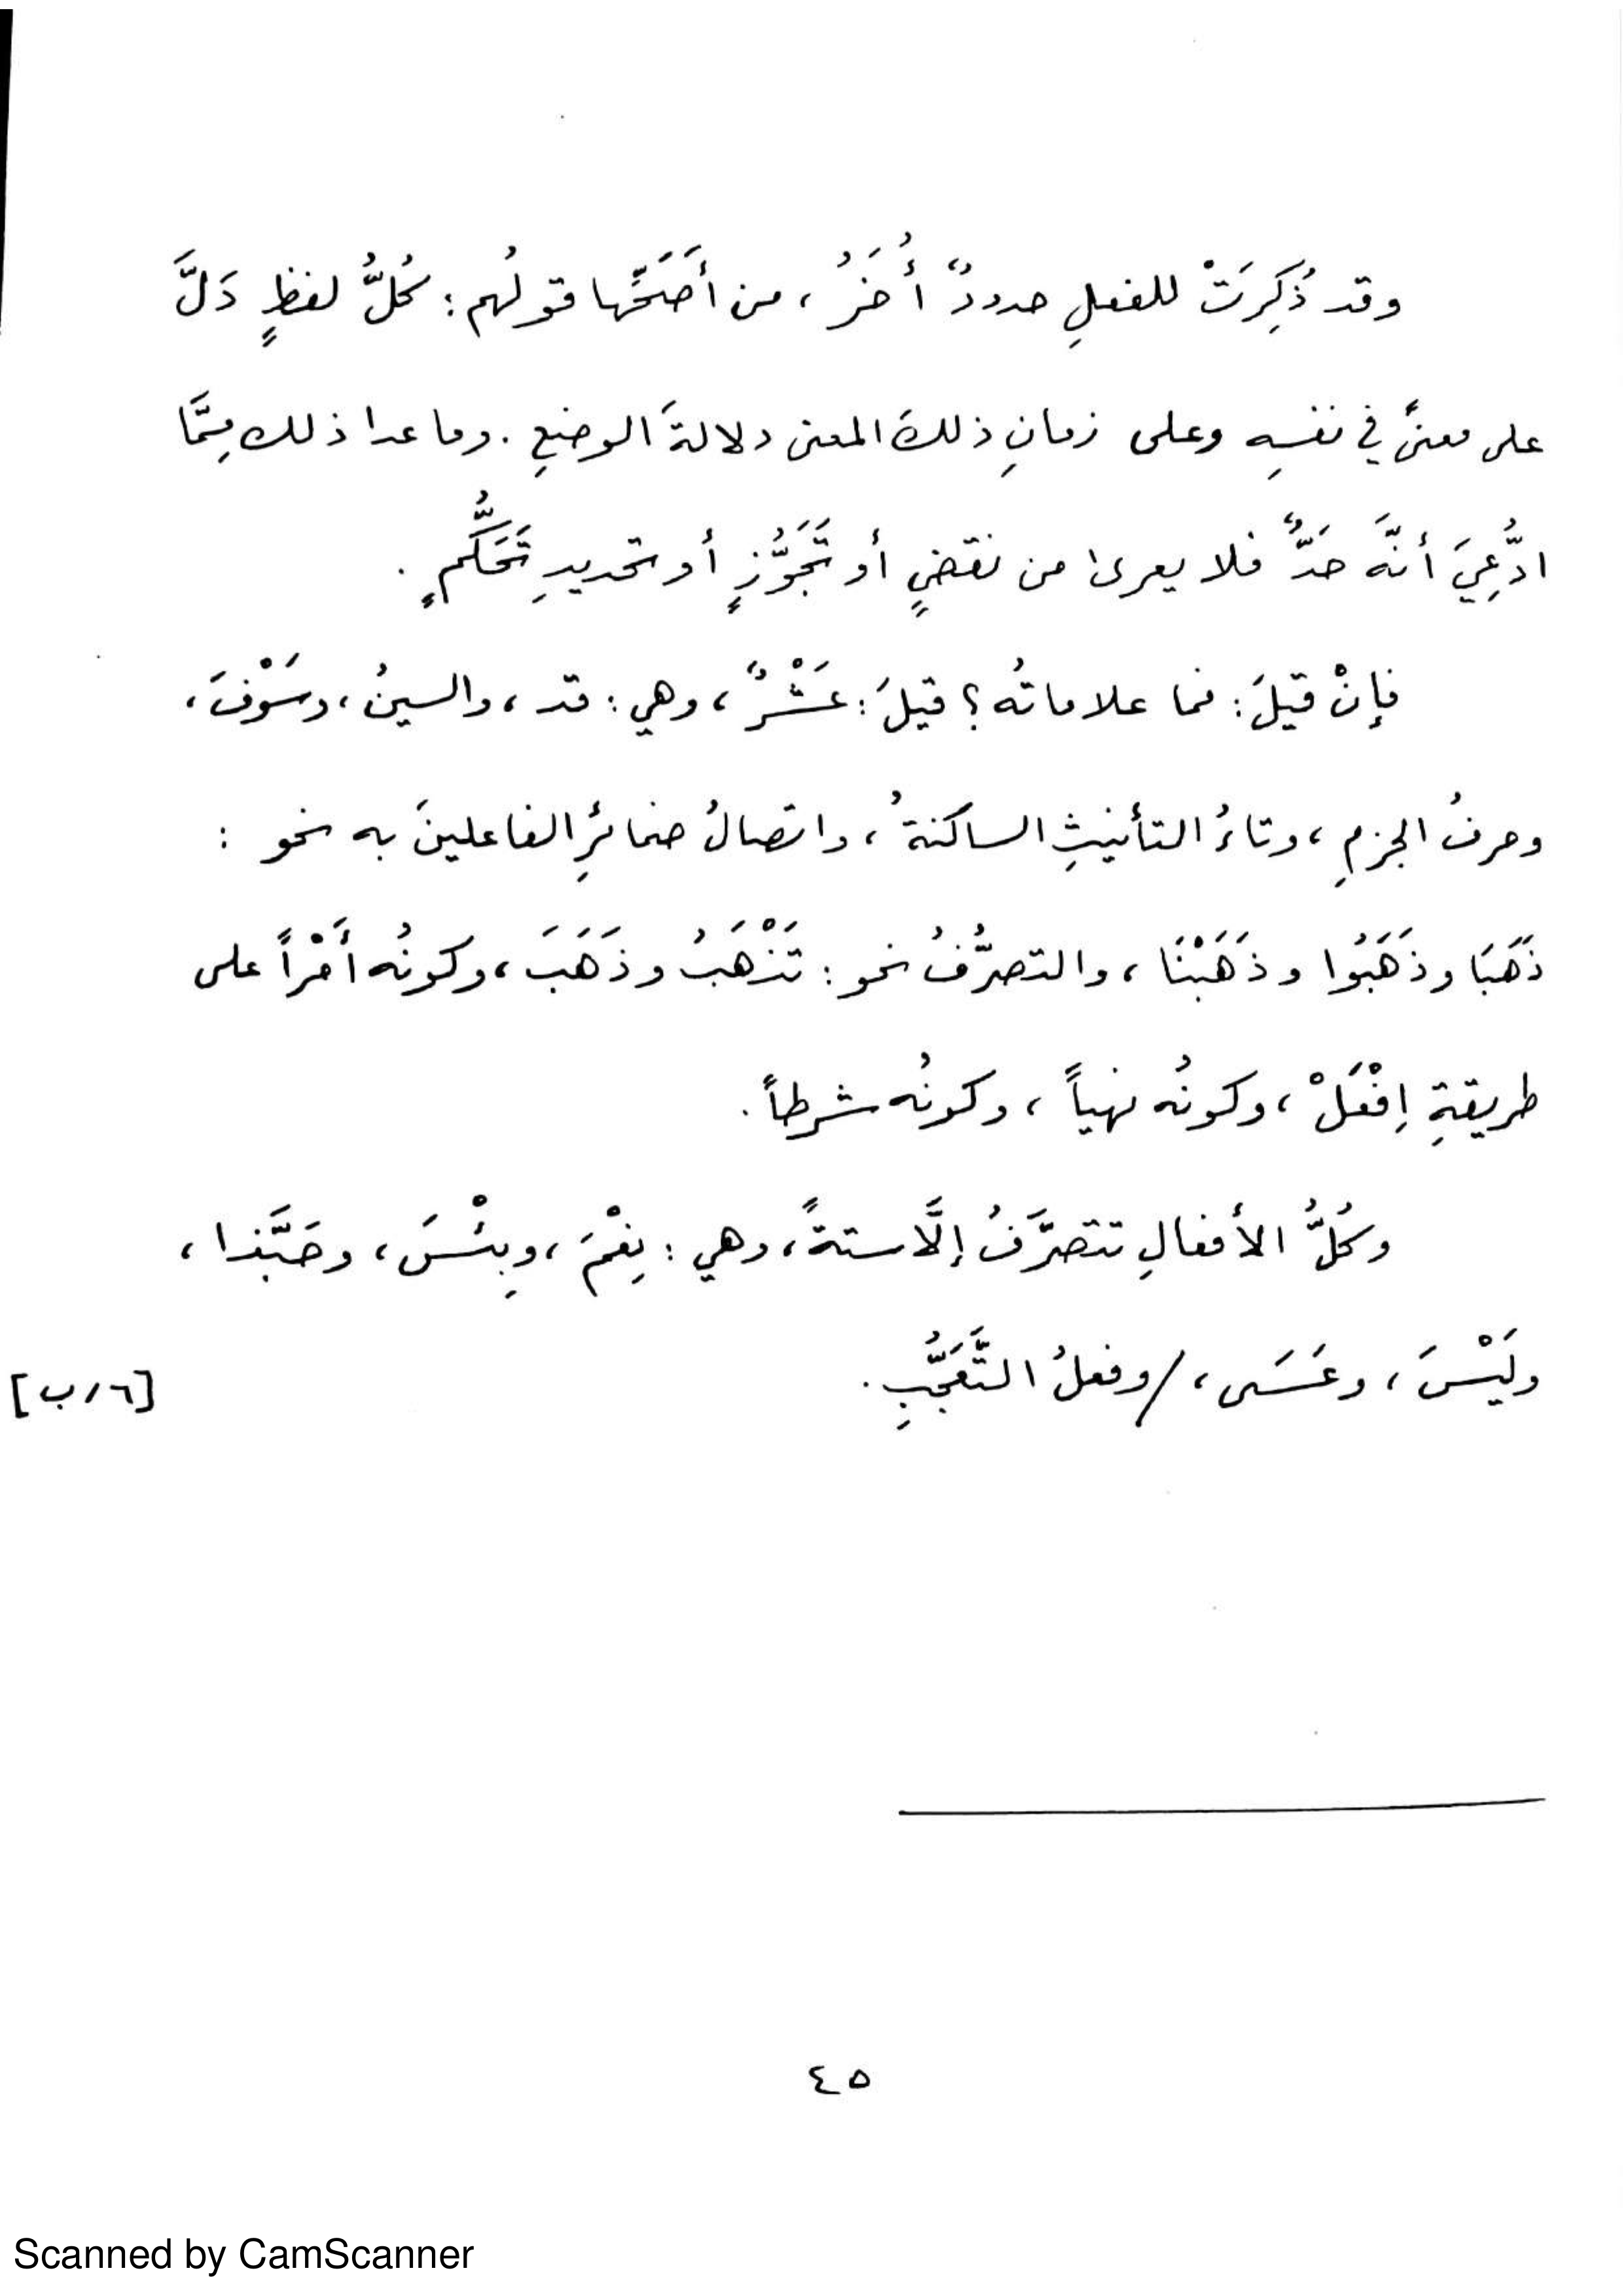 وقد ذُكِرَتْ للفعلِ حدودٌ أُخَرُ ، من أَصَحِّها قولُهم : كُلُّ لفظٍ دَلَّ
على معنىً في نفسِه وعلى زمانِ ذلكَ المعنى دلالةَ الوضعِ . وما عدا ذلك مِمَّا
ادُّعِيَ أنَّه حَدٌّ فلا يعرىٰ من نقضٍ أو تَجَوُّزٍ أو تحديدِ تَحَكُّمٍ .
فإنْ قيلَ : فما علاماتُه ؟ قيلَ : عَشْرٌ ، وهي : قد ، والسينُ ، وسَوْفَ ،
وحرفُ الجزمِ ، وتاءُ التأنيثِ الساكنةُ ، واتصالُ ضمائرِ الفاعلينَ به نحو :
ذَهَبَا وذَهَبُوا وذَهَبْنَا ، والتصرُّفُ نحو : تَذْهَبُ وذَهَبَ ، وكونُه أَمْراً على
طريقةِ اِفْعَلْ ، وكونُه نهياً ، وكونُه شرطاً .
وكُلُّ الأفعالِ تتصرَّفُ إلَّا ستةً ، وهي : نِعْمَ ، وبِئْسَ ، وحَبَّذا ،
ولَيْسَ ، وعَسَى ، / وفعلُ التَّعَجُّبِ .
[٦/ب]
٤٥
Scanned by CamScanner